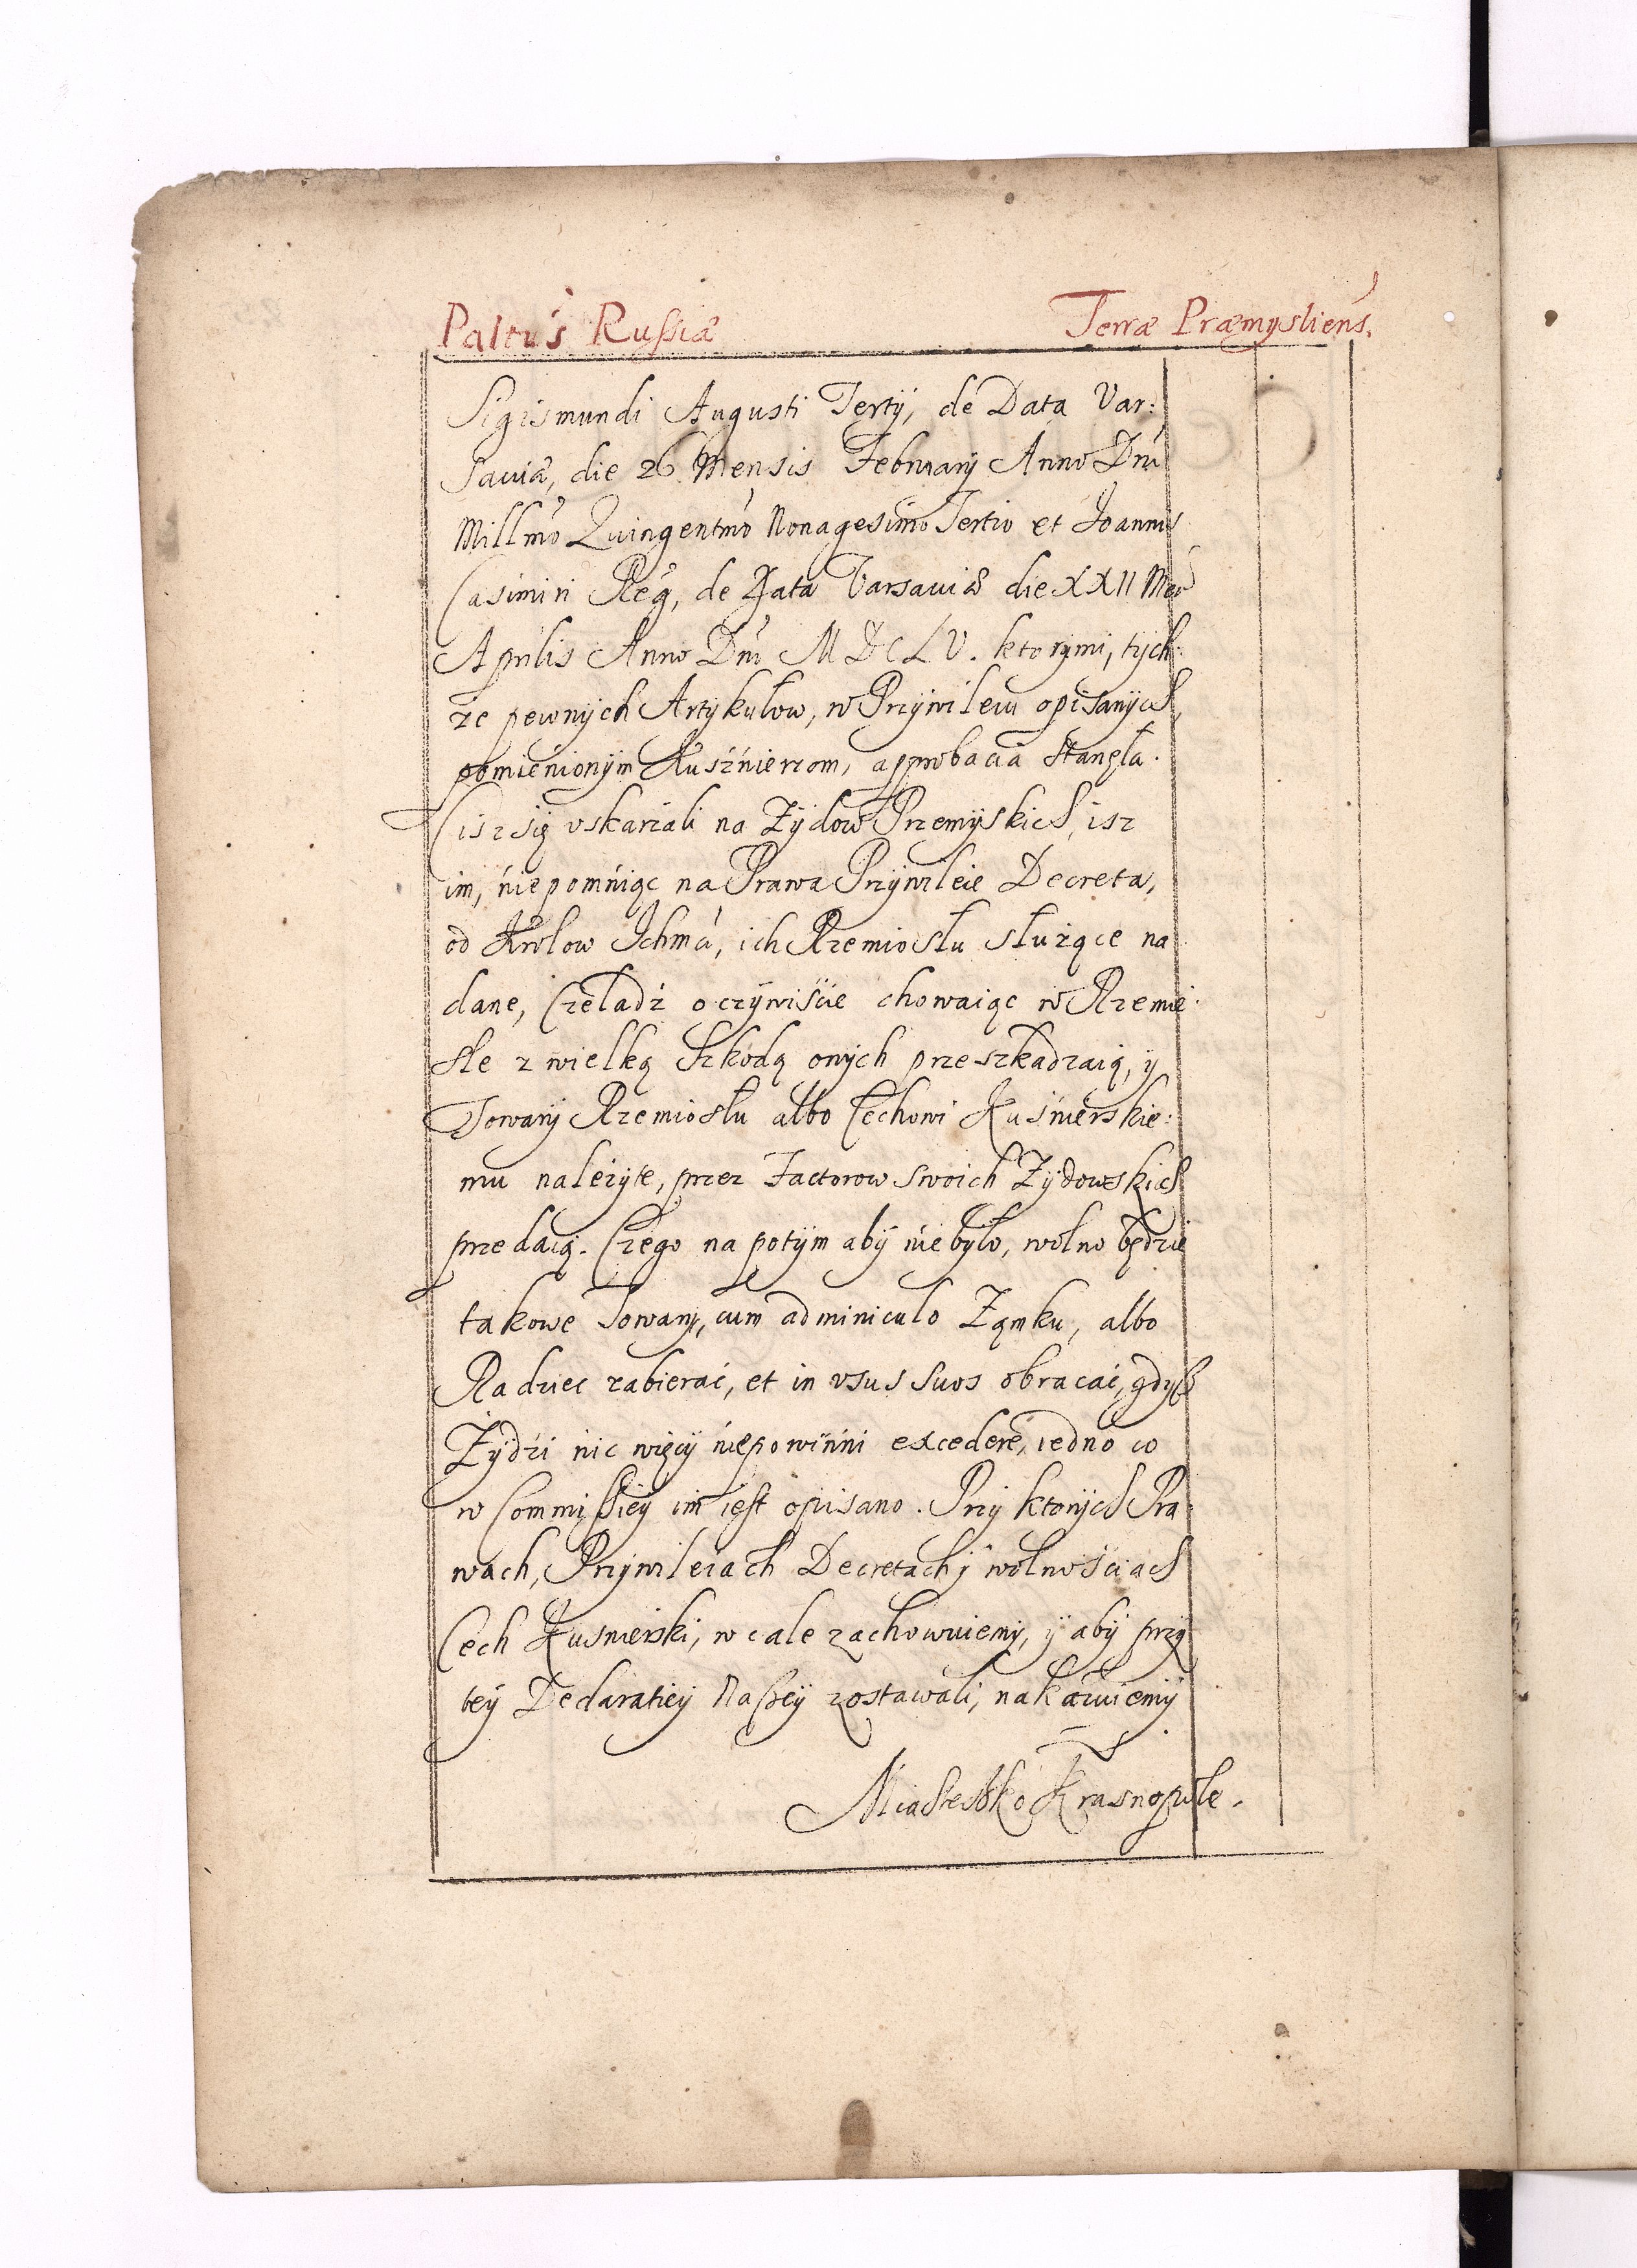 Paltus Russiæ
Terræ Præmysliens.
Sigismundi Augusti Tertÿ, de Data Var:
sauiæ, die 26 Mensis Februarÿ Anno Dni
Millmo Quingentmo Nonagesimo Tertio et Joannis
Casimiri Reg, de Data Varsauiæ die XXII Men
Aprilis Anno Dni MDCLV. ktorÿmi, tÿch:
ze pewnÿch Artÿkułow, w Przÿwileiu opisanÿch,
pomienionÿm Kuśnierzom, approbacia stanęła.
Cisz się vskarżali na Żÿdow Przemÿskich, isz
im, niepomniąc na Prawa Przÿwileie Decreta,
od Krolow Ichmć, ich Rzemiosłu słuzące na
dane, Czeladź oczÿwiście chowaiąc w Rzemie:
śle z wielką szkodą onÿch przeszkadzaią, ÿ
Towarÿ Rzemiosłu albo Cechowi Kuśnierskie:
mu należÿte, przez Factorow swoich Żÿdowskich
przedaią. Czego na potÿm abÿ niebÿło, wolno będzie
takowe Towarÿ, cum adminiculo Zamku, albo
Radziec zabierać, et in vsus suos obracać, gdÿsz
Żÿdzi nic więcÿ niepowinni excedere, iedno co
w Commissieÿ im iest opisano. Przÿ ktorÿch Pra
wach, Przÿwileiach Decretach ÿ wolnościach
Cech Kusnierski, w cale zachowuiemÿ, ÿ abÿ przÿ
teÿ Declaratieÿ Naszeÿ zostawali, nakazuiemÿ
Miasteczko Krasnopole.